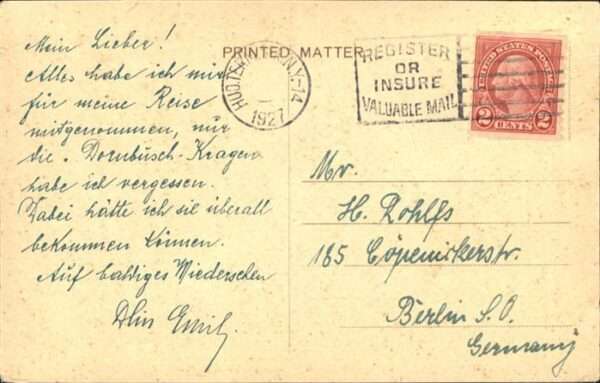 Mein Lieber!
Alles habe ich mir
für meine Reise
mitgenommen, nur
die "Dornbusch-Kragen
habe ich vergessen.
Dabei hätte ich sie überall
bekommen können.
Auf baldiges Wiedersehen
Dein Emil.
PRINTED MATTER
N.Y. 14
1927
REGISTER
OR
INSURE
VALUABLE MAIL
UNITED STATES POSTAGE
2 CENTS 2
Mr.
H. Rohlfs
185 Cöpenickerstr.
Berlin S.O.
Germany